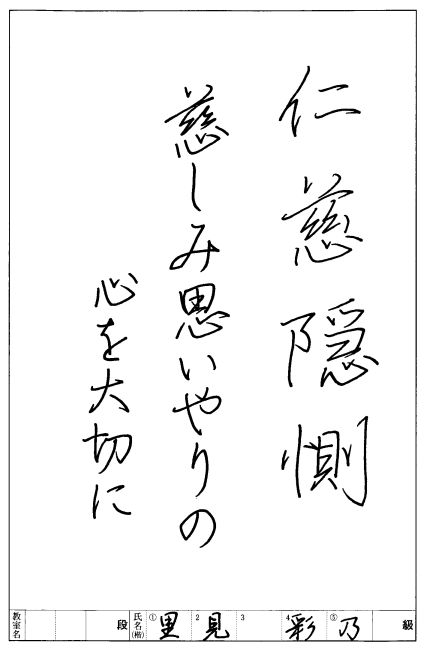 仁慈隠惻
慈しみ思いやりの
心を大切に
教室名 段 氏名(楷) ①里 2見 3 4彩 ⑤乃 級